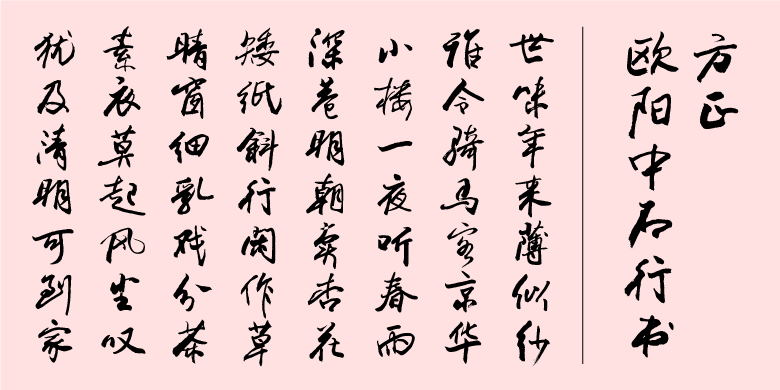 方正
欧阳中石行书
世味年来薄似纱
谁令骑马客京华
小楼一夜听春雨
深巷明朝卖杏花
矮纸斜行闲作草
晴窗细乳戏分茶
素衣莫起风尘叹
犹及清明可到家